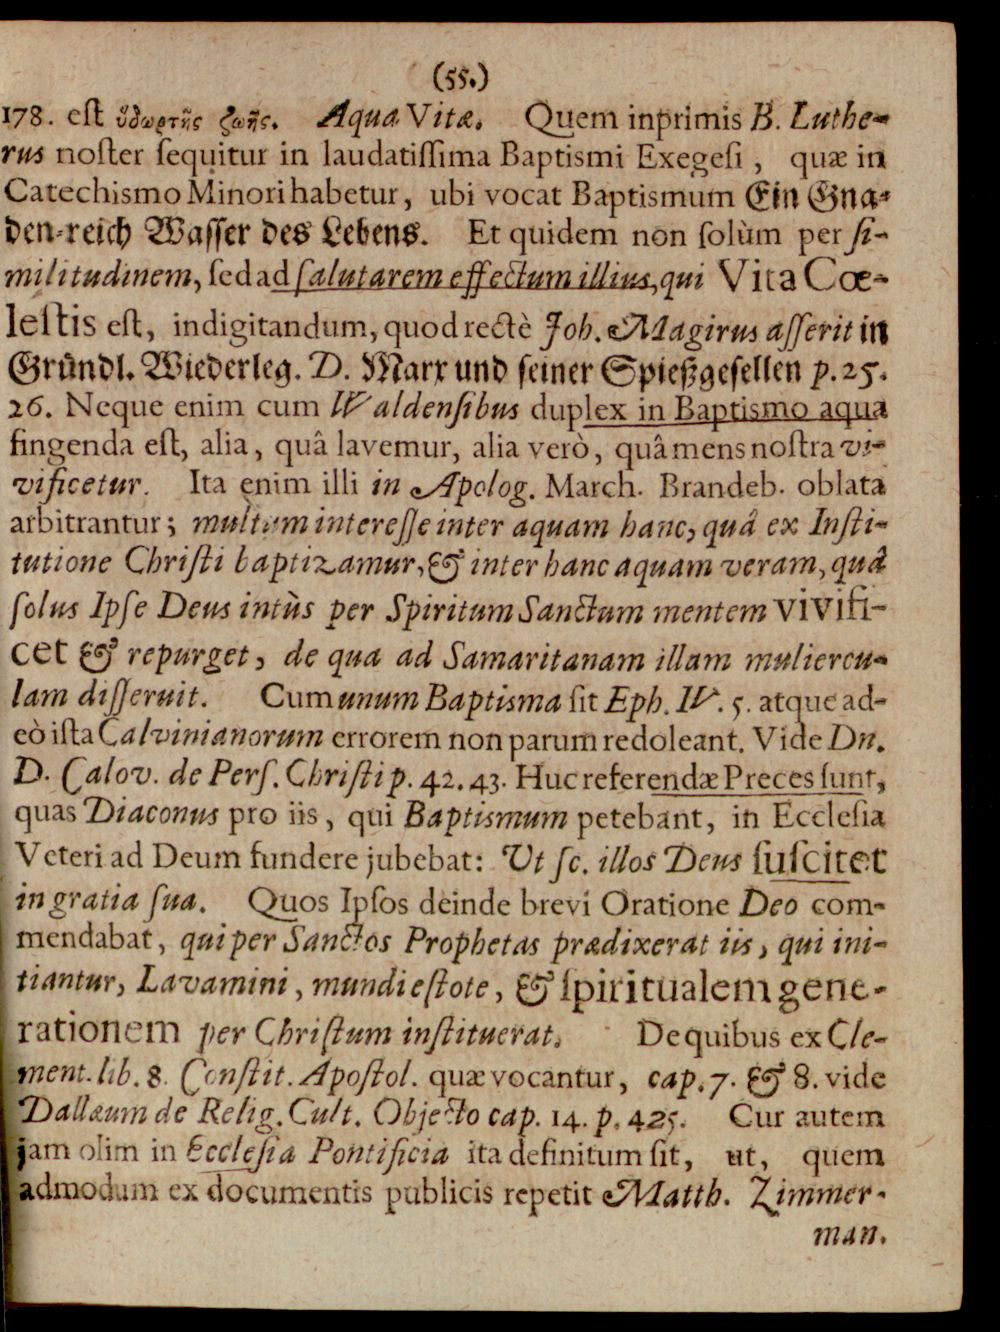 (55.)
178. est ὕδωρ τῆς ζωῆς. Aqua Vitæ. Quem inprimis B. Luthe-
rus noster sequitur in laudatissima Baptismi Exegesi, quæ in
Catechismo Minori habetur, ubi vocat Baptismum Ein Gna-
den-reich Wasser des Lebens. Et quidem non solùm per si-
militudinem, sed ad salutarem effectum illius, qui Vita Cœ-
lestis est, indigitandum, quod rectè Joh. Magirus asserit in
Gründl. Wiederleg. D. Marx und seiner Spießgesellen p. 25.
26. Neque enim cum Waldensibus duplex in Baptismo aqua
fingenda est, alia, quâ lavemur, alia verò, quâ mens nostra vi-
vificetur. Ita enim illi in Apolog. March. Brandeb. oblata
arbitrantur; multum interesse inter aquam hanc, quâ ex Insti-
tutione Christi baptizamur, & inter hanc aquam veram, quâ
solus Ipse Deus intùs per Spiritum Sanctum mentem vivifi-
cet & repurget, de qua ad Samaritanam illam muliercu-
lam disseruit. Cum unum Baptisma sit Eph. IV. 5. atque ad-
eò ista Calvinianorum errorem non parum redoleant. Vide Dn.
D. Calov. de Pers. Christi p. 42. 43. Huc referendæ Preces sunt,
quas Diaconus pro iis, qui Baptismum petebant, in Ecclesia
Veteri ad Deum fundere jubebat: Ut sc. illos Deus suscitet
in gratia sua. Quos Ipsos deinde brevi Oratione Deo com-
mendabat, qui per Sanctos Prophetas prædixerat iis, qui ini-
tiantur, Lavamini, mundi estote, & spiritualem gene-
rationem per Christum instituerat. De quibus ex Cle-
ment. lib. 8. Constit. Apostol. quæ vocantur, cap. 7. & 8. vide
Dallæum de Relig. Cult. Objecto cap. 14. p. 425. Cur autem
jam olim in Ecclesia Pontificia ita definitum sit, ut, quem
admodum ex documentis publicis repetit Matth. Zimmer-
man.